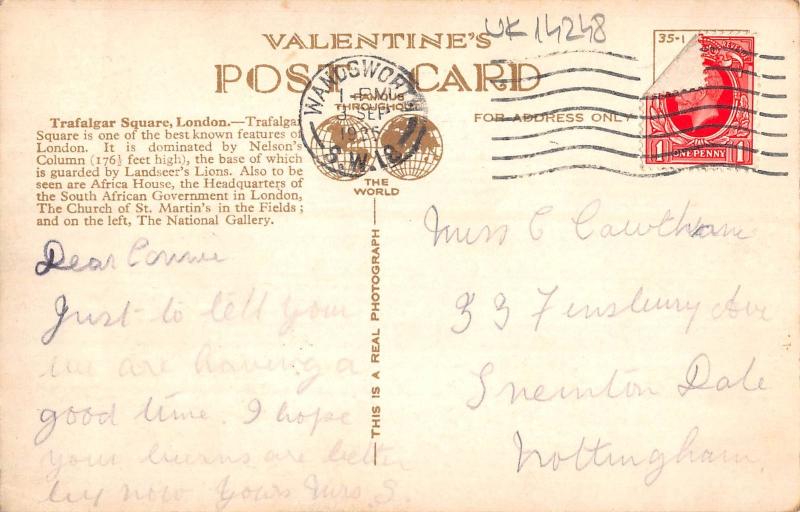 UK 14248
VALENTINE'S
35-1
POST CARD
FAMOUS
THROUGHOUT
THE
WORLD
WANDSWORTH
1 - PM
SEP
S.W.18.
FOR ADDRESS ONLY
1 ONE PENNY 1
Trafalgar Square, London.—Trafalgar
Square is one of the best known features of
London. It is dominated by Nelson's
Column (176½ feet high), the base of which
is guarded by Landseer's Lions. Also to be
seen are Africa House, the Headquarters of
the South African Government in London,
The Church of St. Martin's in the Fields ;
and on the left, The National Gallery.
Dear Connie
Just to tell your
we are having a
good time. I hope
your burns are better
by now Yours Mrs. S.
THIS IS A REAL PHOTOGRAPH
Miss C Cawthane
33 Finsbury Ave
Sneinton Dale
Nottingham